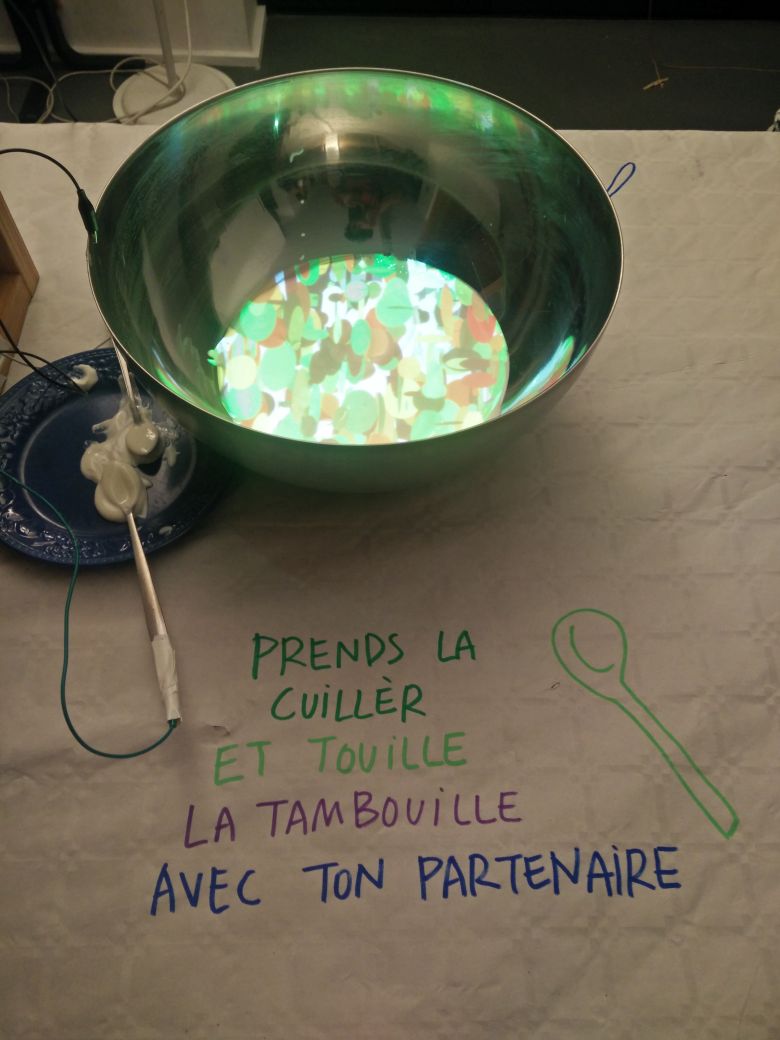 PRENDS LA
CUILLÈR
ET TOUILLE
LA TAMBOUILLE
AVEC TON PARTENAIRE